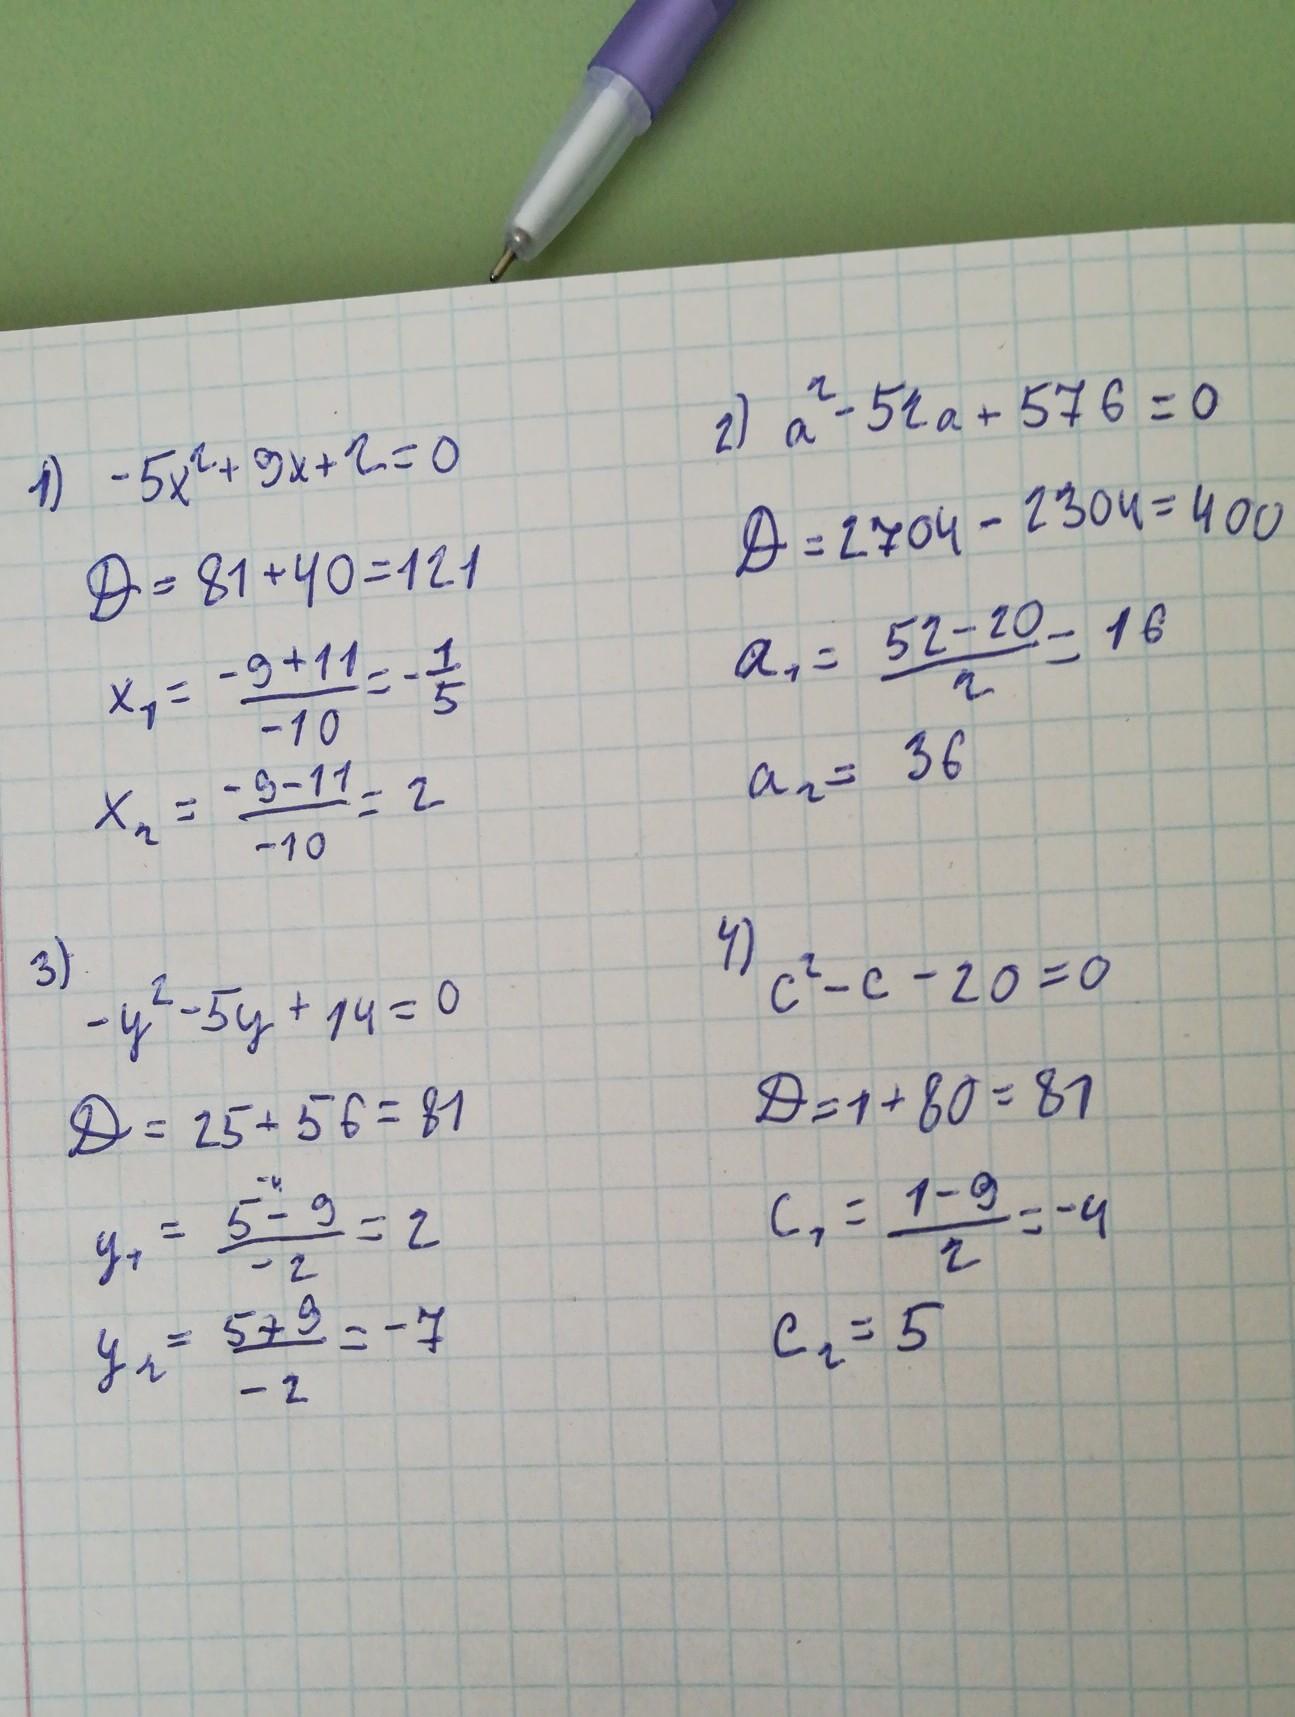 1) -5x²+9x+2=0
D = 81+40=121
x₁ = (-9+11)/(-10) = -1/5
x₂ = (-9-11)/(-10) = 2
2) a²-52a+576=0
D=2704-2304=400
a₁= (52-20)/2 = 16
a₂= 36
3)
-y²-5y+14=0
D = 25+56=81
-4
y₁ = (5-9)/(-2) = 2
y₂ = (5+9)/(-2) = -7
4) c²-c-20=0
D=1+80=81
c₁ = (1-9)/2 = -4
c₂ = 5